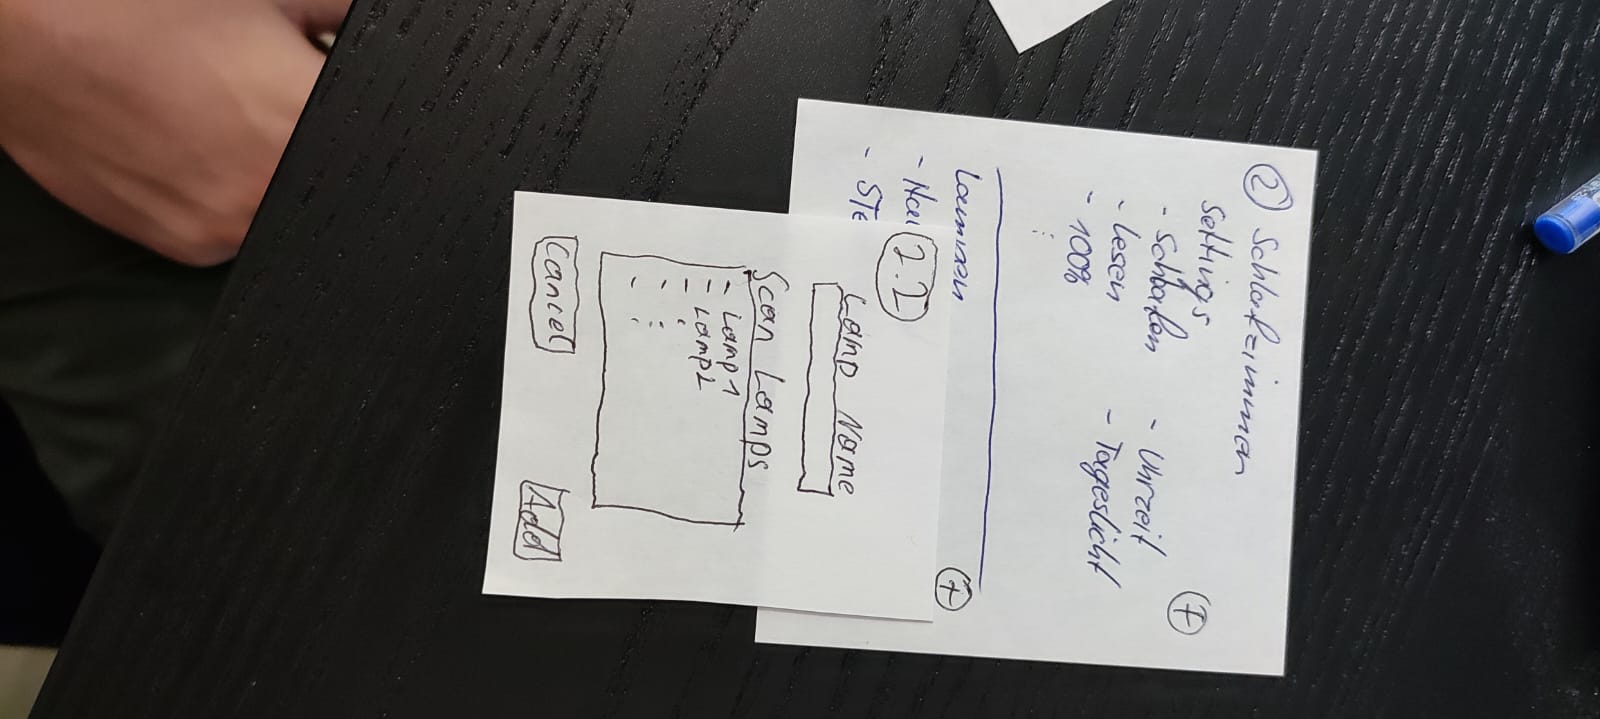 2 Schlafzimmer
Settings
+
- Schlafen - Uhrzeit
- Lesen - Tageslicht
- 100%
⋮
Lampen +
2.2
Lamp Name
Scan Lamps
- Lamp1
- Lamp2
-
-
-
Cancel Add